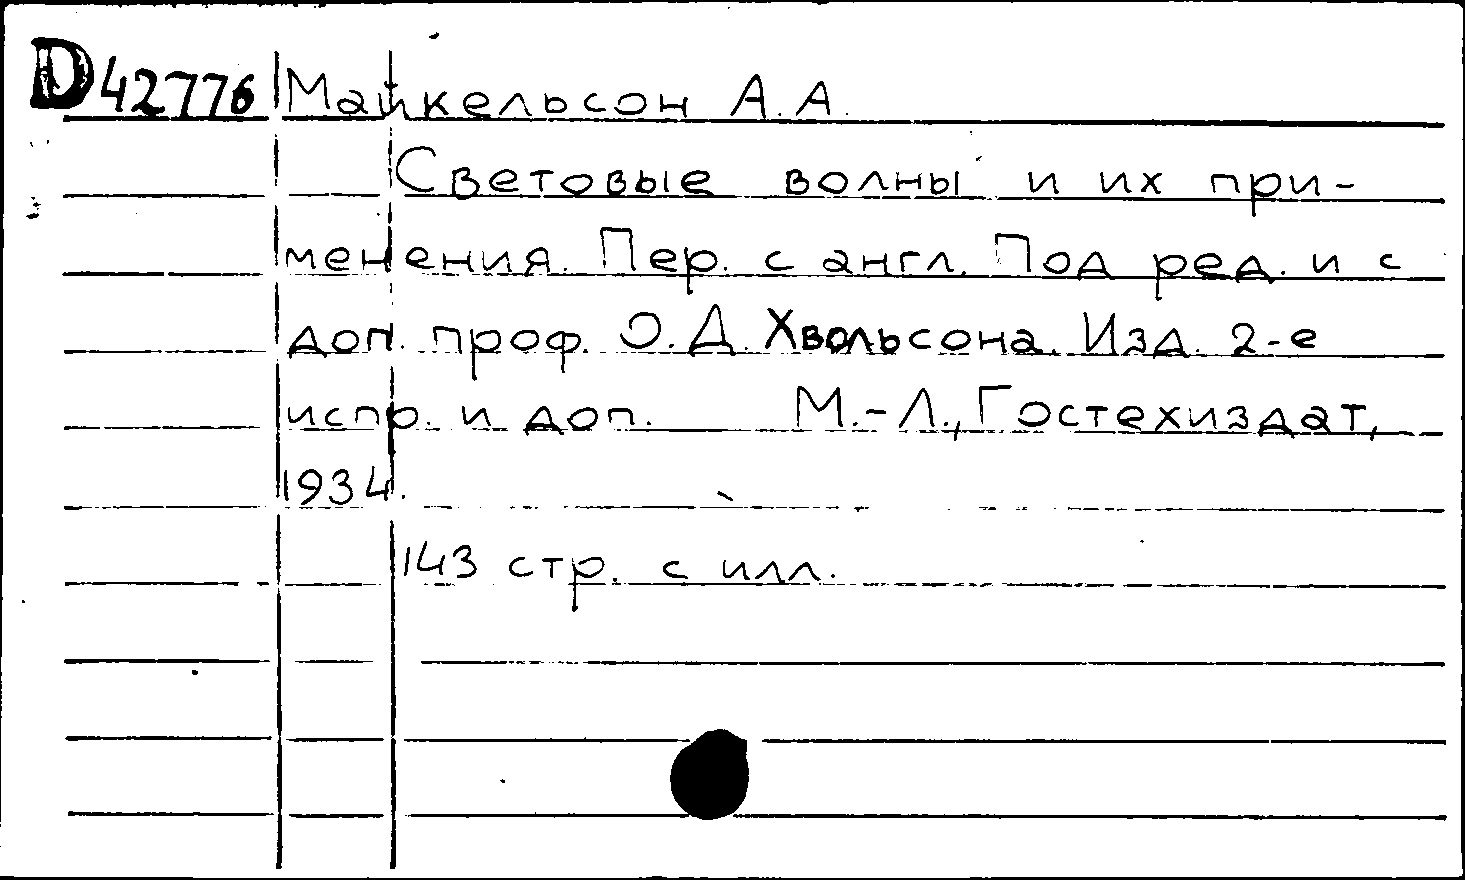 D42776 Майкельсон А.А.
Световые волны и их при-
менения. Пер. с англ. Под ред. и с
доп. проф. О.Д. Хвольсона. Изд. 2-е
испр. и доп. М.-Л., Гостехиздат,
1934.
143 стр. с илл.